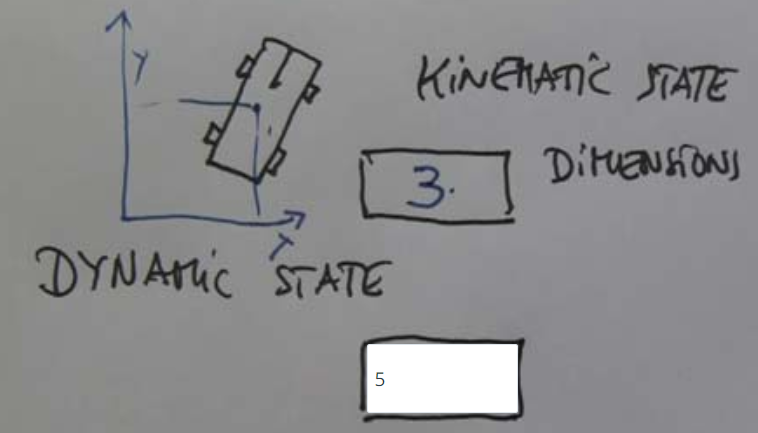 Y
KINEMATIC STATE
3. DIMENSIONS
X
DYNAMIC STATE
5